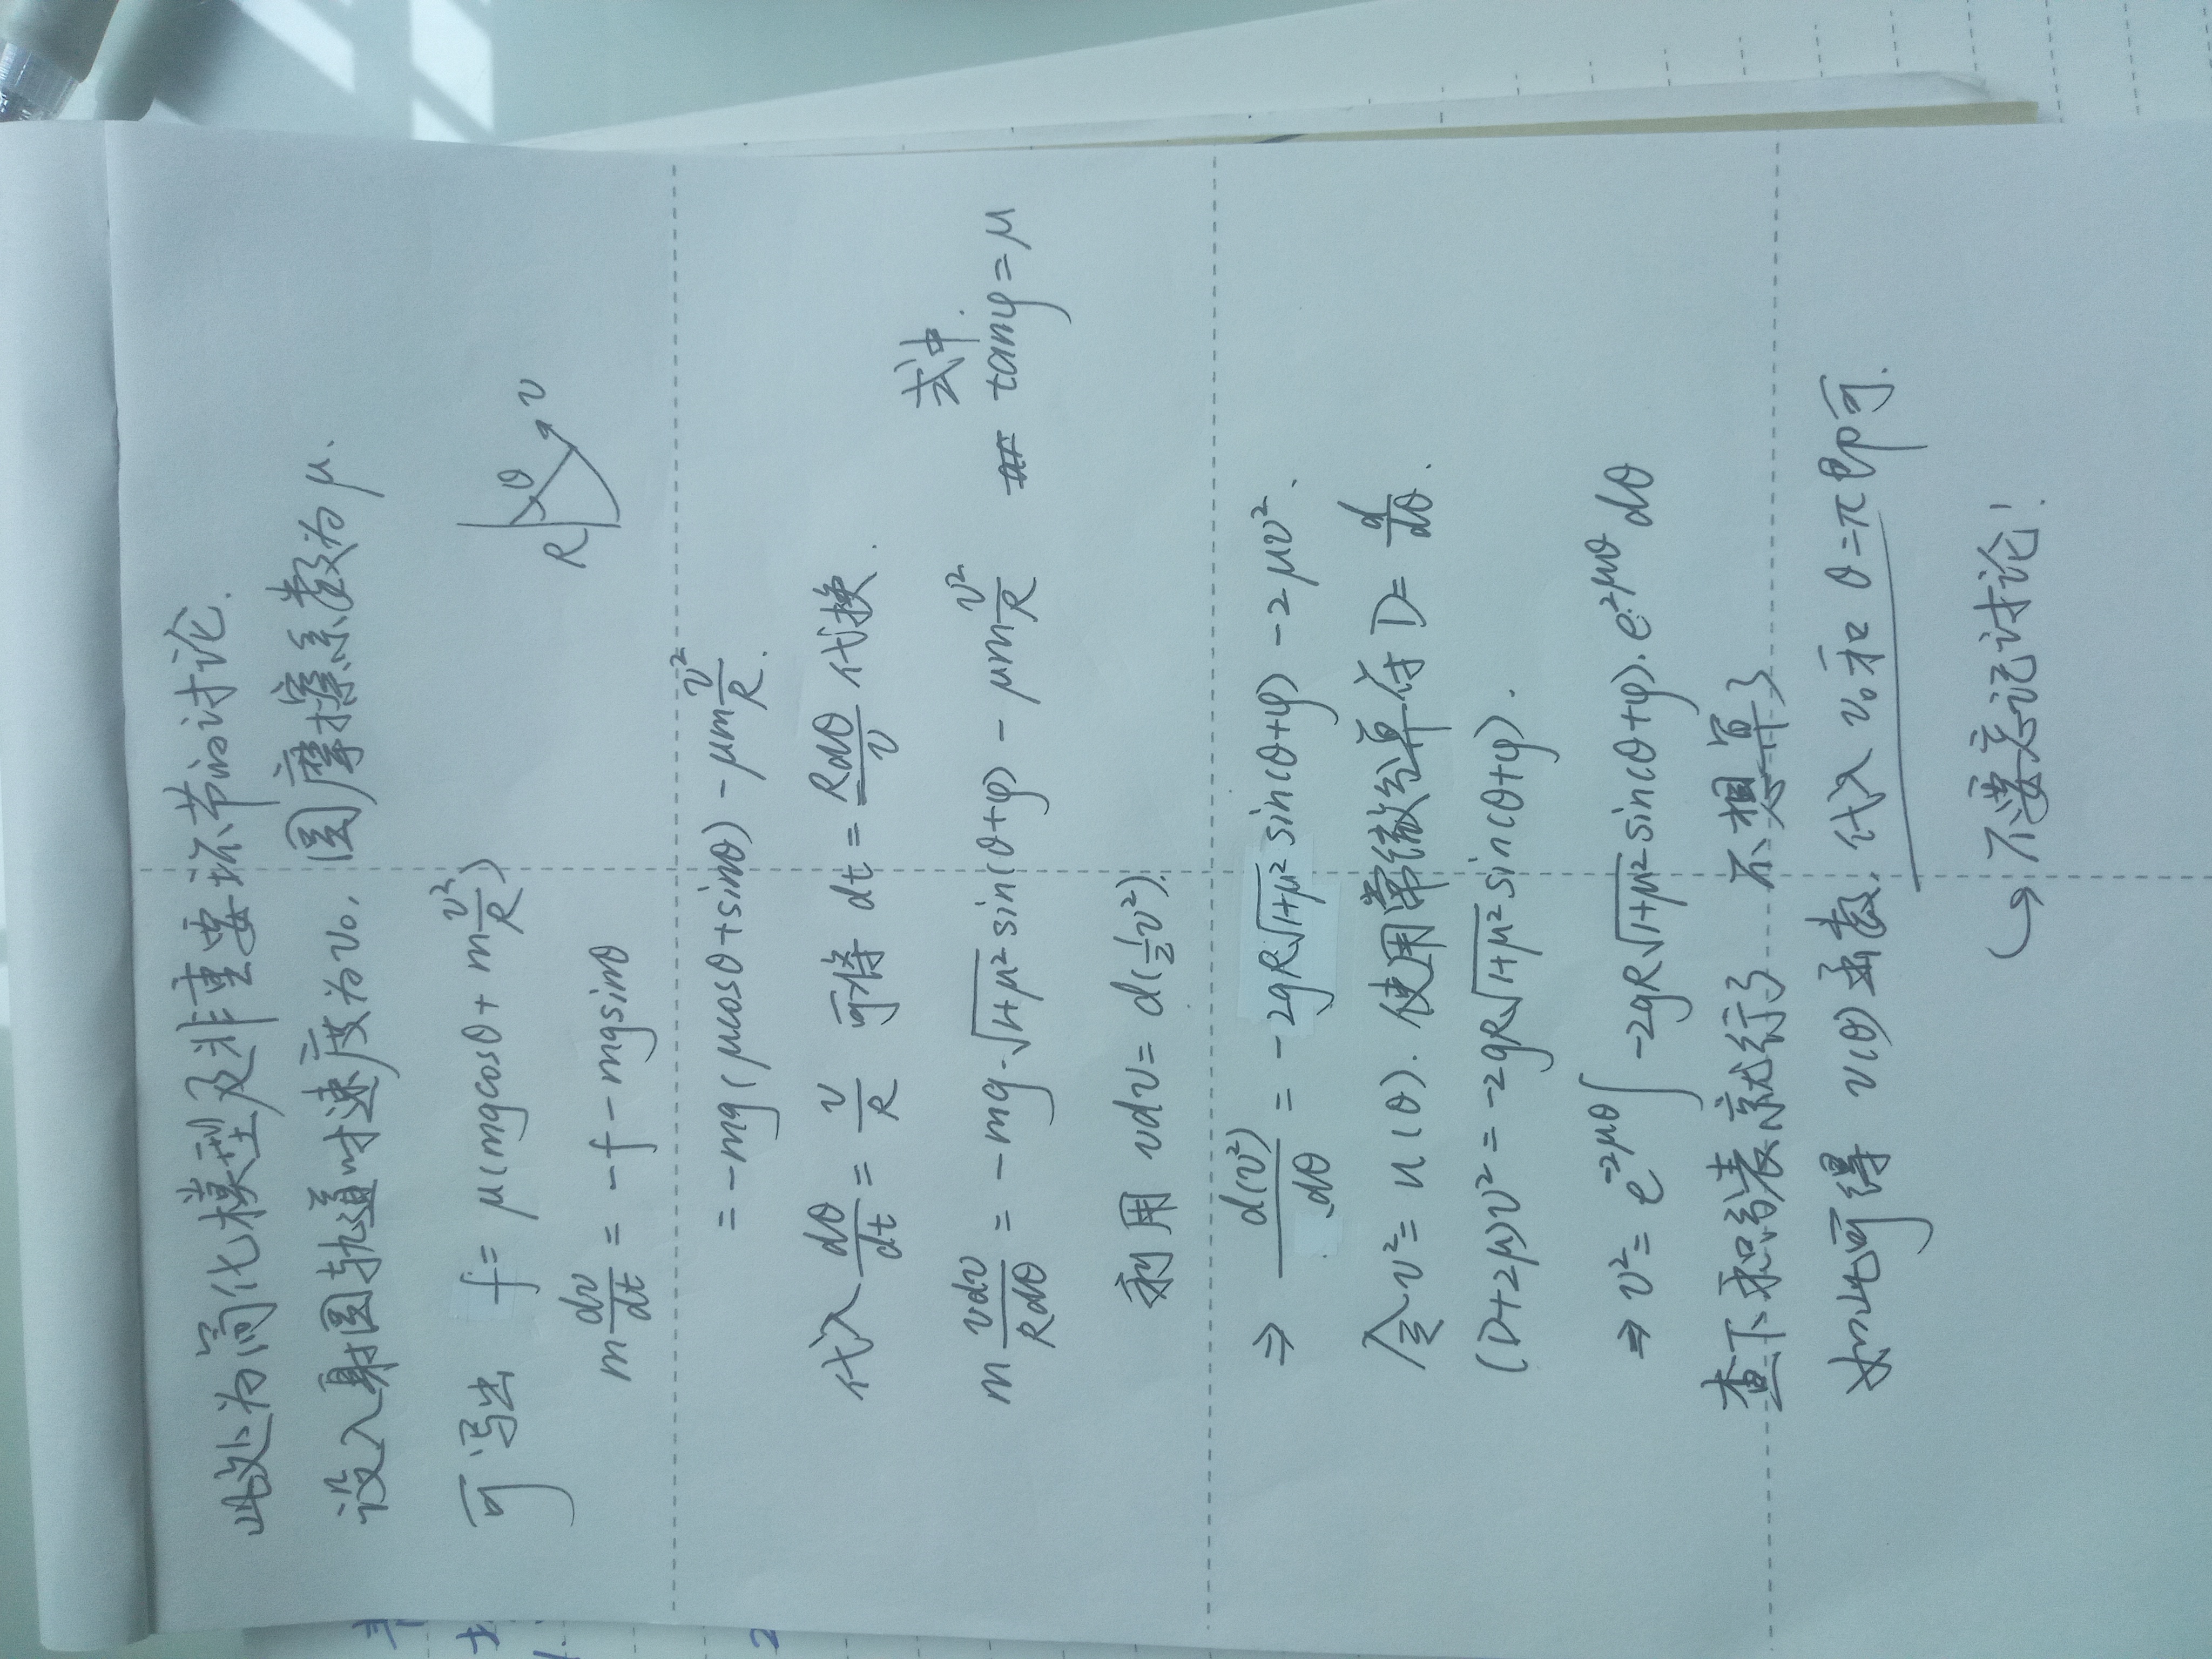 此处为简化模型及非重要环节的讨论.
设入射圆轨道时速度为v₀, 圆摩擦系数为μ.
可写出 f = μ(mgcosθ + m v²/R)
R θ v
m dv/dt = -f - mgsinθ
= -mg(μcosθ+sinθ) - μm v²/R.
代入 dθ/dt = v/R 可将 dt = Rdθ/v 代换.
m vdv/Rdθ = -mg·√(1+μ²) sin(θ+φ) - μm v²/R 式中. tanφ = μ
利用 vdv = d(½v²).
⇒ d(v²)/dθ = -2gR√(1+μ²) sin(θ+φ) - 2μv².
令 v² = u(θ). 使用常微分算符 D = d/dθ.
(D+2μ)v² = -2gR√(1+μ²) sin(θ+φ).
⇒ v² = e^(-2μθ) ∫ -2gR√(1+μ²) sin(θ+φ)·e^(2μθ) dθ
查下积分表就行了 不想算了
如此可得 v(θ)函数, 代入 v₀ 和 θ=π 即可.
↳ 不要忘记讨论!